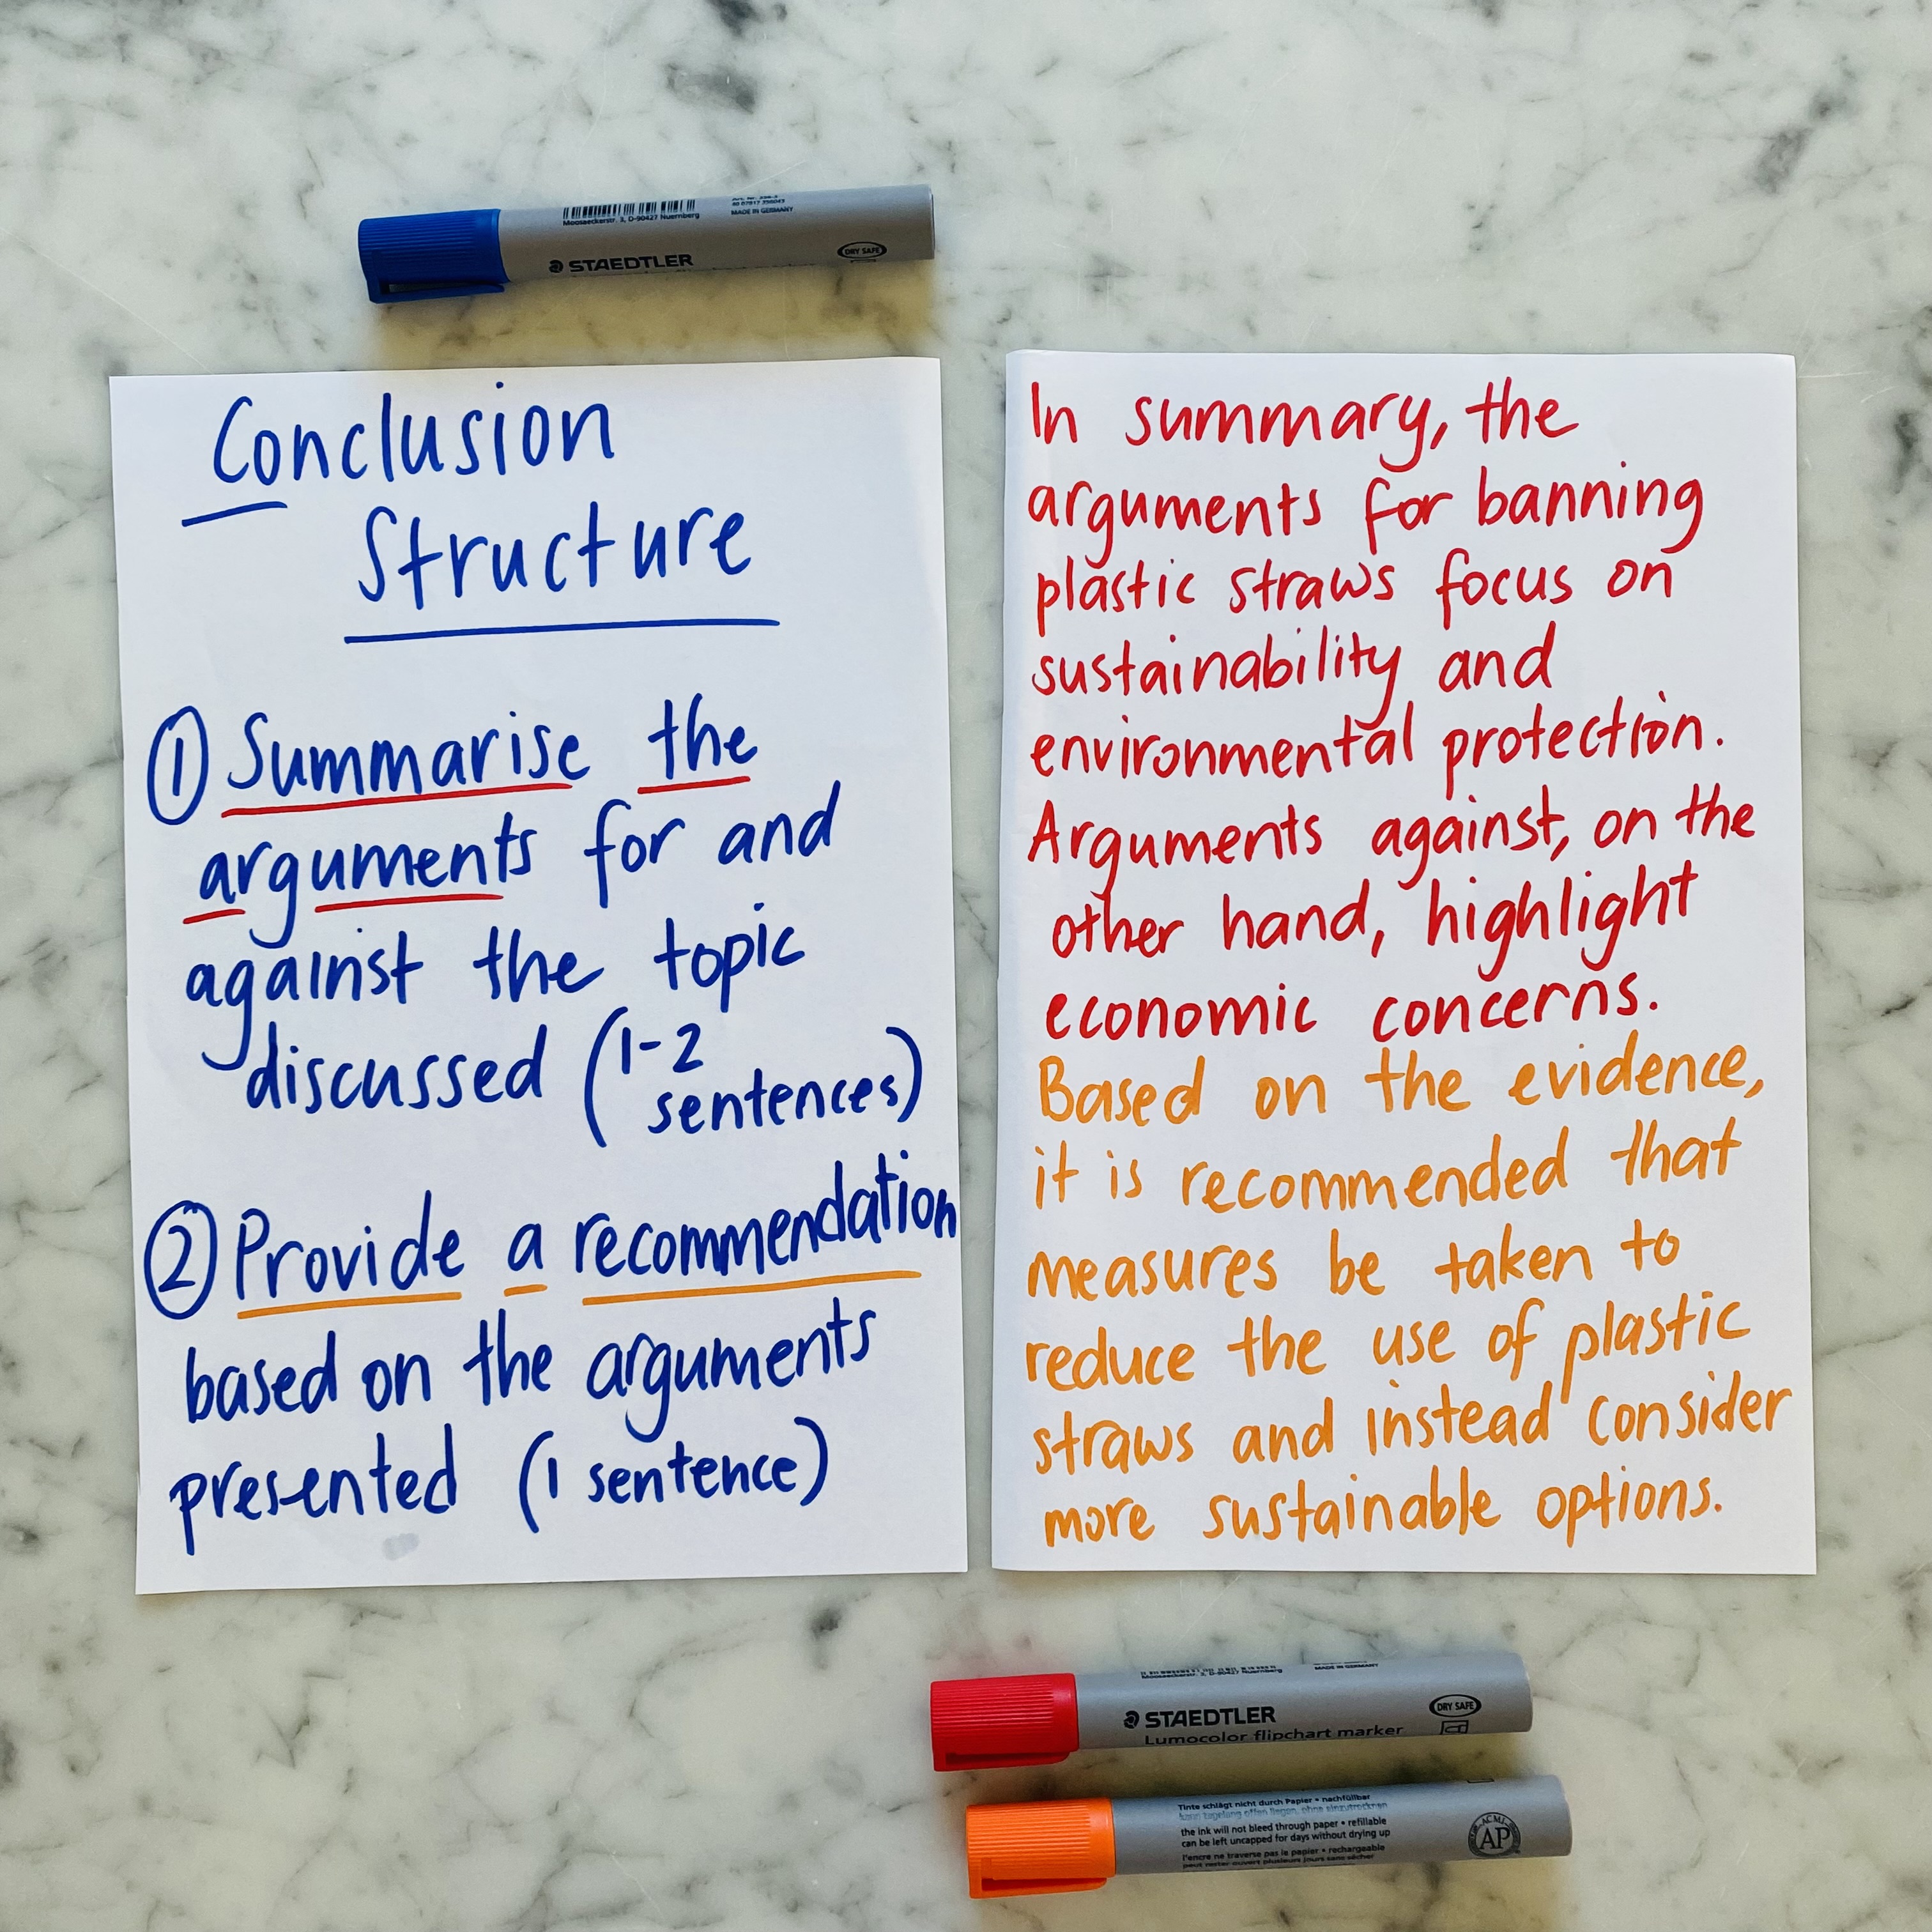 Moosaeckerstr. 3, D-90427 Nuernberg
MADE IN GERMANY
STAEDTLER
DRY SAFE
Conclusion
Structure
① Summarise the
arguments for and
against the topic
discussed (1-2
sentences)
② Provide a recommendation
based on the arguments
presented (1 sentence)
In summary, the
arguments for banning
plastic straws focus on
sustainability and
environmental protection.
Arguments against, on the
other hand, highlight
economic concerns.
Based on the evidence,
it is recommended that
measures be taken to
reduce the use of plastic
straws and instead consider
more sustainable options.
Moosaeckerstr. 3, D-90427 Nuernberg
MADE IN GERMANY
STAEDTLER
DRY SAFE
Lumocolor flipchart marker
Tinte schlägt nicht durch Papier • nachfüllbar
kann tagelang offen liegen, ohne einzutrocknen
the ink will not bleed through paper • refillable
can be left uncapped for days without drying up
l'encre ne traverse pas le papier • rechargeable
peut rester ouvert plusieurs jours sans sécher
ACMI
AP